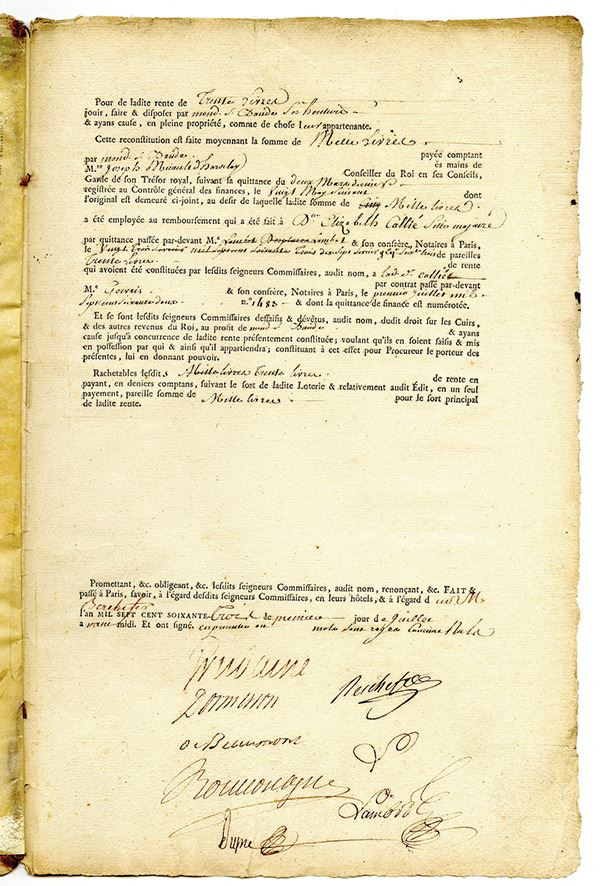 Pour de ladite rente de Trente Livres
jouir, faire & disposer par mond. S. Baudes Ses heritiers
& ayans cause, en pleine propriété, comme de chose leur appartenante.
Cette reconstitution est faite moyennant la somme de Mille livres
par mond. S. Baudes payée comptant
M.re Joseph Micault d'harvelay ès mains de
Conseiller du Roi en ses Conseils,
Garde de son Trésor royal, suivant sa quittance du deux Mars dernier
registrée au Contrôle général des finances, le Vingt May suivant dont
l'original est demeuré ci-joint, au desir de laquelle ladite somme de Mille livres
a été employée au remboursement qui a été fait à D.lle Elizabeth Collié fille majeure
par quittance passée par-devant M.e Laideguive & son confrère, Notaires à Paris,
le Vingt Trois mil sept cent soixante trois de pareilles
Trente livres de rente
qui avoient été constituées par lesdits seigneurs Commissaires, audit nom, à lad. d. Collié
par contrat passé par-devant
M.e & son confrère, Notaires à Paris, le premier juillet mil
Sept cent soixante deux n.o 1483 & dont la quittance de finance est numérotée.
Et se sont lesdits seigneurs Commissaires dessaisis & dévêtus, audit nom, dudit droit sur les Cuirs,
& des autres revenus du Roi, au profit de mond. S. Baudes & ayans
cause jusqu'à concurrence de ladite rente présentement constituée; voulant qu'ils en soient saisis & mis
en possession par qui & ainsi qu'il appartiendra; constituant à cet effet pour Procureur le porteur des
présentes, lui en donnant pouvoir.
Rachetables lesdits Mille livres Trente livres de rente en
payant, en deniers comptans, suivant le sort de ladite Loterie & relativement audit Édit, en un seul
payement, pareille somme de Mille livres pour le sort principal
de ladite rente.
Promettant, &c. obligeant, &c. lesdits seigneurs Commissaires, audit nom, renonçant, &c. FAIT &
passé à Paris, savoir, à l'égard desdits seigneurs Commissaires, en leurs hôtels, & à l'égard d
l'an MIL SEPT CENT SOIXANTE-Trois le premier jour de Juillet
avant midi. Et ont signé
Dormesson
De Beaumont
Dupré